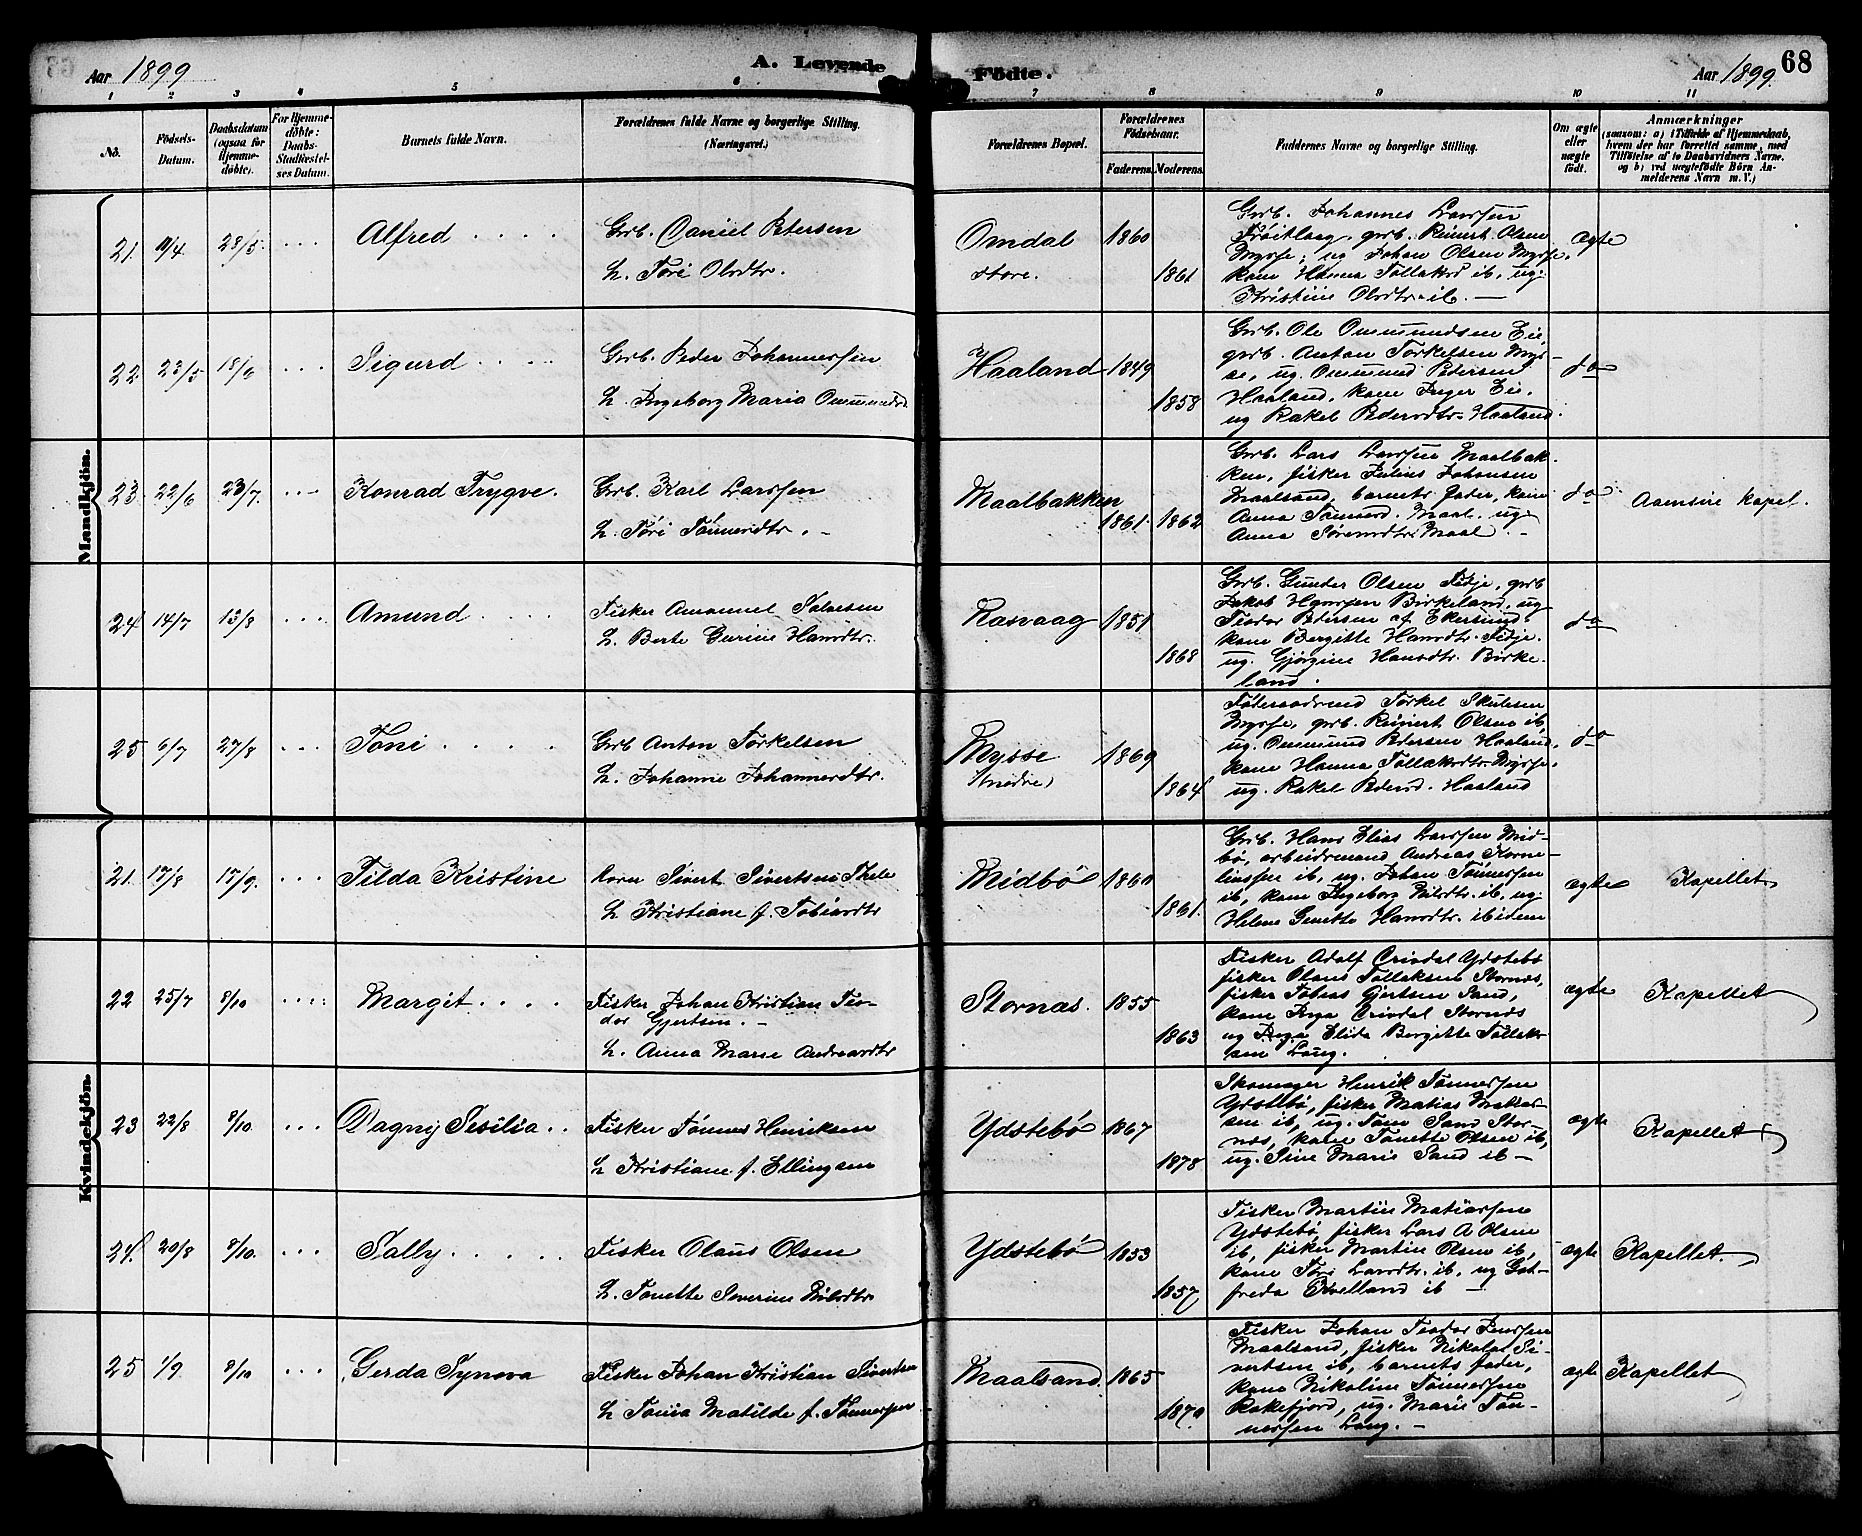 Aar 1899 A. Levende Födte. Aar 1899. 68
1 2 3 4 5 6 7 8 9 10 11
No.
Födsels-
Datum.
Daabsdatum
(ogsaa for
Hjemme-
döbte).
For Hjemme-
döbte:
Daabs-
Stadfæstel-
ses Datum.
Barnets fulde Navn.
Forældrenes fulde Navne og borgerlige Stilling.
(Næringsvei.)
Forældrenes Bopæl.
Forældrenes
Födselsaar.
Faderens. Moderens.
Faddernes Navne og borgerlige Stilling.
Om ægte
eller
uægte
født.
Anmærkninger
(saasom: a) i Tilfælde af Hjemmedaab,
hvem der har forrettet samme, med
Tilföielse af to Daabsvidners Navne.
og b) ved uægtefödte Börn An-
melderens Navn m. V.)
Mandkjön.
21. 11/4 28/5. Alfred
Grb. Daniel Petersen
h. Tori Olsdtr.
Omdal
store.
1860
1861
Grb. Johannes Larssen
grb. Reinert Olsen
Mysse, ug Johan Olsen Mysse,
kone Hanna Tollaksd ib, ug.
Kristine Olsdtr. ib. —
Ægte
22 23/5 18/6 Sigurd
Grb. Peder Johannessen
h. Ingeborg Maria Ommundsd.
Haaland
1849
1858
Grb. Ole Ommundsen Eie,
grb. Anton Torkelsen Mys-
se, ug. Ommund Pedersen
Haaland, kone Inger Eie,
ug Rakel Pedersdtr. Haaland.
do
23 22/6 23/7. Konrad Trygve.
Grb. Karl Larssen
h. Tori Tönnesdtr. -
Maalbakken
1861. 1862
Grb. Lars Larssen Maalbak-
ken, fisker Julius Johansen
Maalsand, barnets fader, kone
Anna Tönnesd. Maal. ug.
Anna Sörensdtr. Maal. -
do
Aamsire kapel.
24 14/7 13/8 Amund
Fisker Amanuel Salvesen
h. Berte Gurine Hansdtr.
Rasvaag
1851
1868
Grb. Gunder Olsen Fidje, grb
Jakob Hanssen Birkeland, ug
Teodor Pedersen af Ekersund.
kone Bergitte Hansdtr. Fidje.
ug. Gjörgine Hansdtr. Birke-
land.
do
25 6/7 27/8 Toni
Grb Anton Torkelsen
h. Johanne Johannesdtr.
Mysse
(nedre)
1869
1864
Torkel Skulesen
Mysse, grb. Reinert Olsen ib,
ug. Ommund Pedersen Haaland,
kone Hanna Tollaksdtr. Mysse,
ug. Rakel Pedersd. Haaland
do
Kvindekjön.
21. 17/8 15/9. Tilda Kristine
Sivert Sivertsen
h Kristiane f. Tobiasdtr
Midbö
1860
1861.
Grb. Hans Elias Larssen Mid-
bö, arbeidsmand Andreas Korne-
liussen ib, ug. Johan Tönnessen
ib, kone Ingeborg Nilsdtr. ib, ug.
Helene Hansdtr. ibidem
ægte
Kapellet
22 25/7 8/10 Margit
Fisker Johan Kristian Teo-
dor Gjertsen. -
h. Anna Marie Andreasdtr
Stornæs.
1855
1863
Fisker Adolf Omdal Ydstebö
fisker Olaus Tollaksen Stornæs,
fisker Tobias Gjertsen Sand,
kone Inga Omdal Stornæs
ug Inga Elida Bergitte Tollak-
sen Laug.
ægte
Kapellet
23 22/8 8/10 Dagny Sesilia
Fisker Tönnes Henriksen
h Kristiane f. Ellingsen
Ydstebö
1867
1878
Skomager Henrik Tönnessen
Ydstebö, fisker Matias Matias-
sen ib, ug. Sand Stor-
næs, kone Tonette Olsen ib,
ug. Sine Marie Sand ib —
ægte
Kapellet
24. 20/8 8/10. Sally
Fisker Olaus Olsen
h. Tonette Severine Nilsdtr
Ydstebö
1853
1857
Fisker Martin Matiassen
Ydstebö, fisker Lars A Olsen
ib, fisker Martin Olsen ib,
kone Tori Larsdtr. ib, ug Got-
freda Kvelland ib —
ægte
Kapellet
25 1/9 8/10 Gerda Synova
Fisker Johan Kristian Sivertsen
h Tonia Matilde f. Tönnessen
Maalsand
1865
1870
Fisker Johan Teodor Jenssen
Maalsand, fisker Nikolai Si-
vertsen ib, barnets fader,
kone Nikoline Tönnessen
Rakefjord, ug. Marie Tön-
nessen Laug. —
ægte
Kapellet